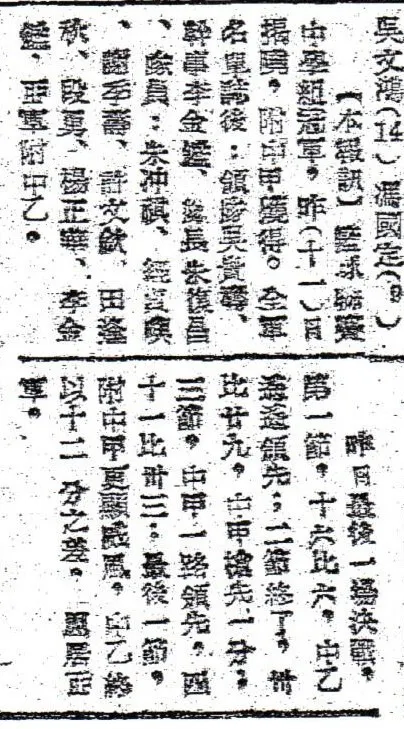 吳文鴻(14)馮國定(9)
【本報訊】籃球聯賽
中學組冠軍,昨(十一)日
揭曉,附中甲獲得。全軍
名單誌後:領隊吳貴、
幹事李金鑑、隊長朱復昌
、隊員:朱冲、程
、謝季壽、許文欽、田
秋、段勇、楊正華、李金
鑑,亞軍附中乙。
昨日最後一場決戰,
第一節,十六比六,中乙
遙遙領先;二節終了,卅
比廿九,中甲搶先一分;
三節,中甲一路領先,四
十一比卅三;最後一節,
附中甲更顯威風,中乙終
以十二分之差,屈居亞
軍。